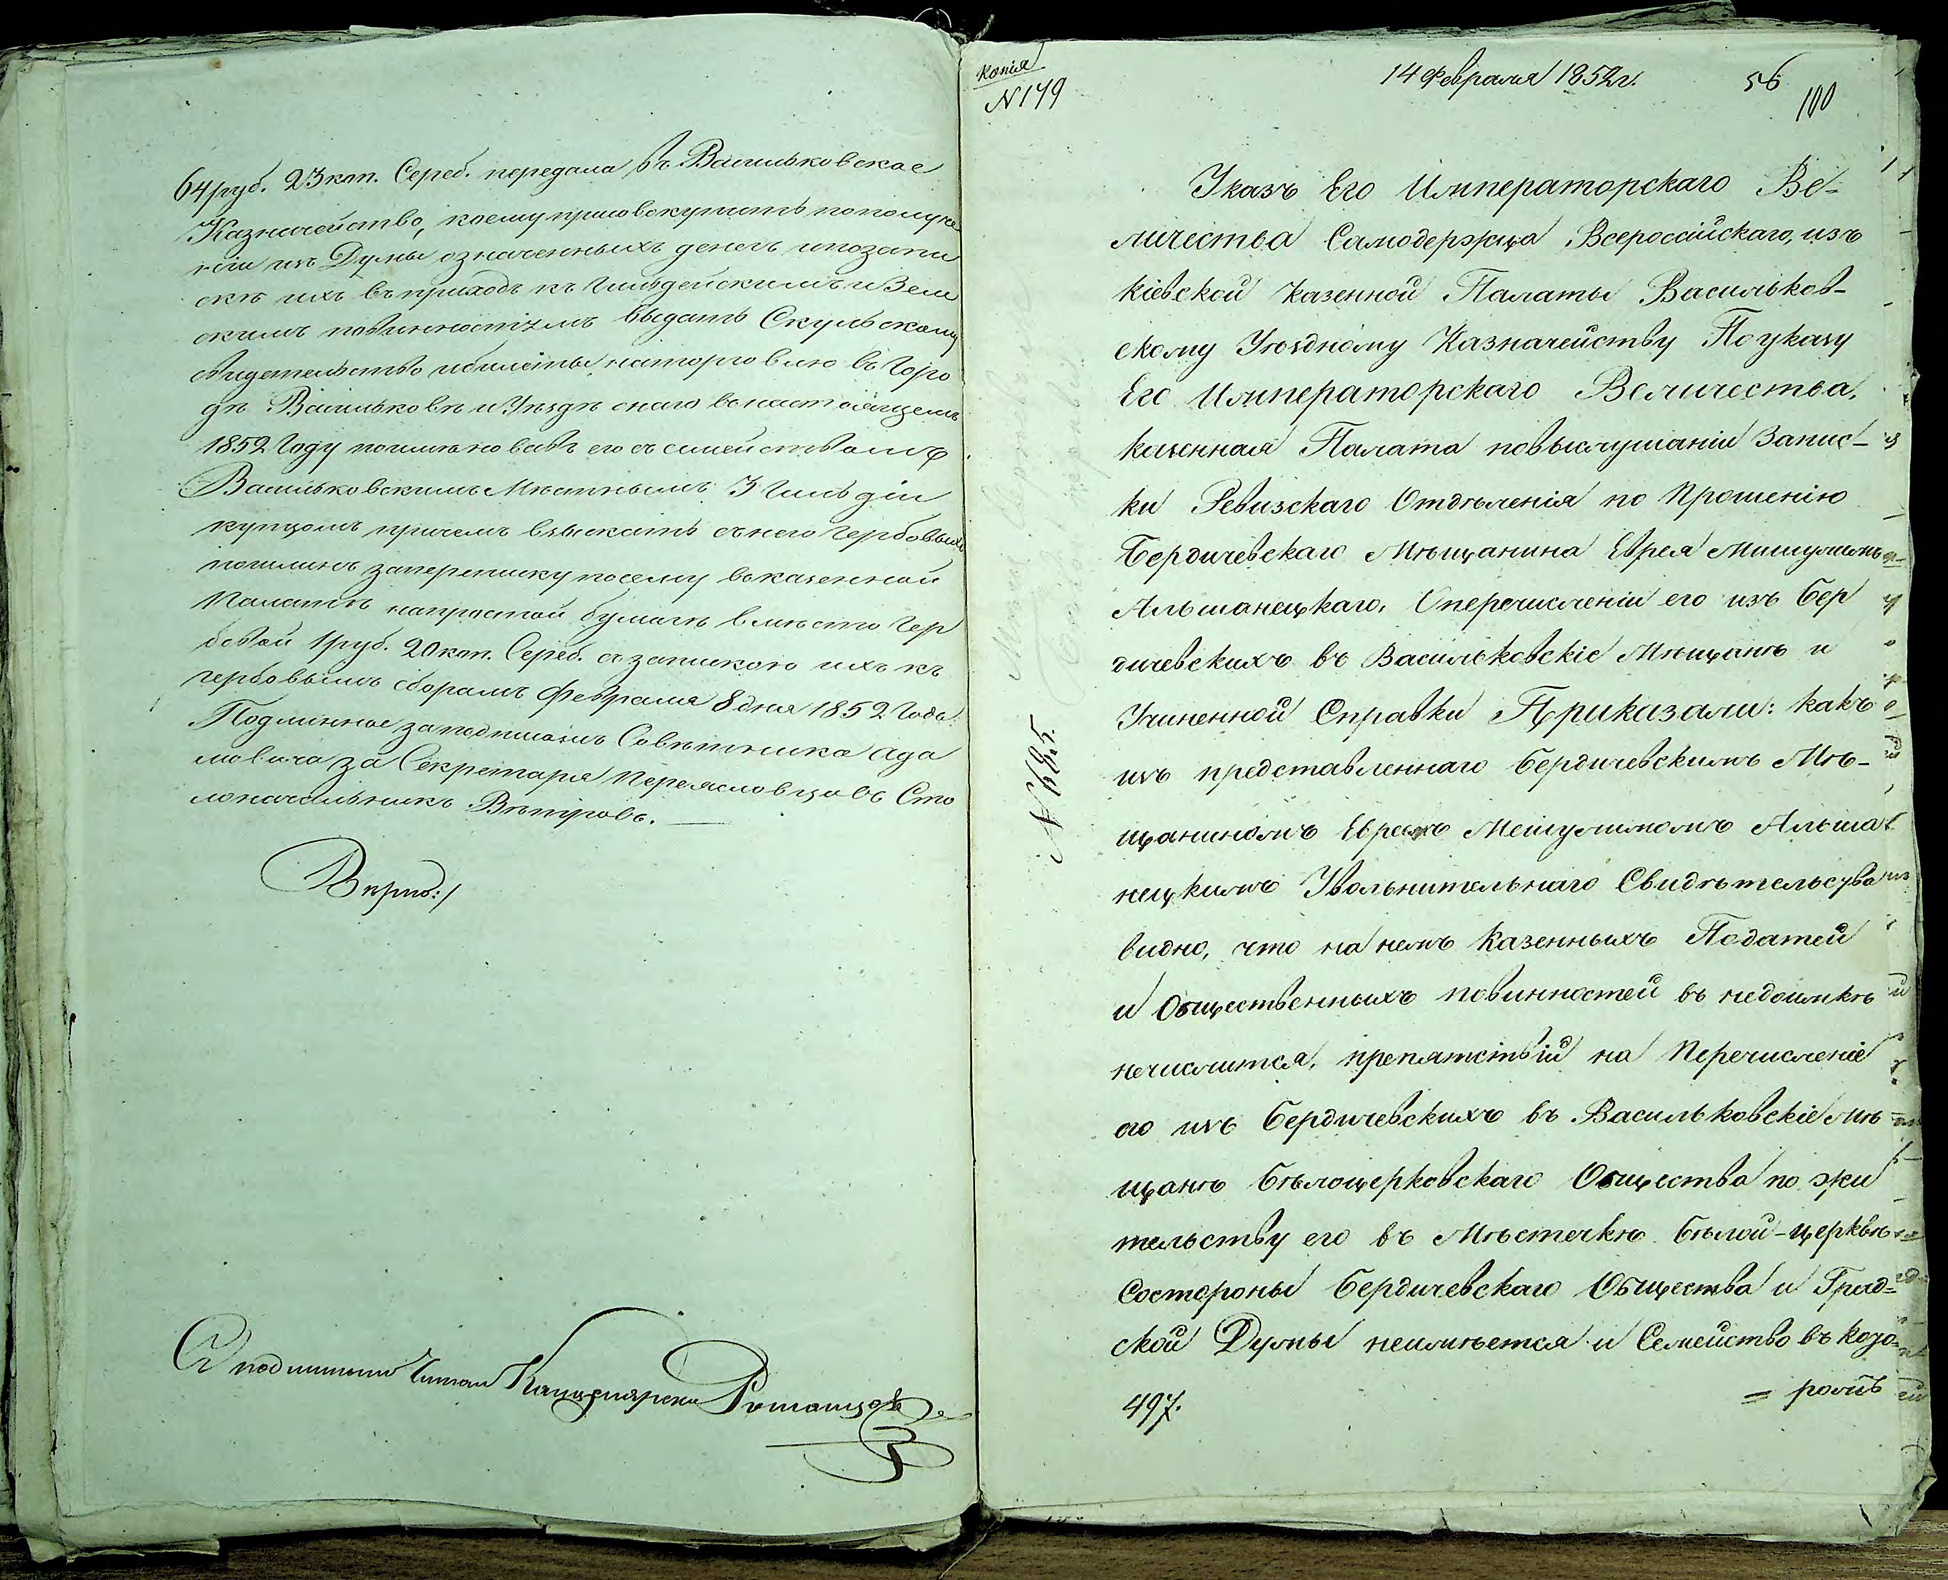 64 руб. 23 коп. Сереб. передала въ Васильковское
Казначейство, коему присовокупить по получе
ніи изъ Думы означенныхъ денегъ и по запи
скѣ ихъ въ приходъ къ Гильдейскимъ и Зем
скимъ повинностямъ выдать Скульскому
свидетельство и билеты на торговлю въ Горо
дѣ Васильковѣ и Уѣздѣ онаго въ настоящемъ
1852 Году поименовавъ его съ семействомъ
Васильковскимъ Мѣстнымъ 3 Гильдіи
купцомъ причемъ взыскать съ него Гербовыхъ
пошлинъ за переписку по сему въ казенной
Палатѣ на простой бумагѣ вмѣсто Гер
бовой 1 руб. 20 коп. Сереб. съ запискою ихъ къ
гербовымъ сборамъ Февраля 8 дня 1852 Года.
Подлинное за подписомъ Совѣтника Ада
мовича за Секретаря Переясловцовъ Сто
лоначальникъ Вѣтровъ.
Вѣрно:
Съ подлиннымъ Читалъ Канцеляріи
копія
N 179
14 Февраля 1852 г.
56
100
Указъ Его Императорскаго Ве-
личества Самодержца Всероссійскаго, изъ
Кіевской Казенной Палаты Васильков-
скому Уѣздному Казначейству По указу
Его Императорскаго Величества,
казенная Палата по выслушаніи Запис-
ки Ревизскаго Отдѣленія по Прошенію
Бердичевскаго Мѣщанина Еврея
Альшанецкаго, О перечисленіи его изъ Бер
дичевскихъ въ Васильковскіе Мѣщанѣ и
Учиненной Справки Приказали: какъ
изъ представленнаго Бердичевскимъ Мѣ-
щаниномъ Евреемъ Мешулимомъ Альша
нецкимъ Увольнительнаго Свидѣтельства
видно, что на немъ Казенныхъ Податей
и Общественныхъ повинностей въ недоимкѣ
нечислится, препятствій на Перечисленіе
его изъ Бердичевскихъ въ Васильковскіе Мѣ
щанѣ Бѣлоцерковскаго Общества по жи
тельству его въ Мѣстечкѣ Бѣлой-церквѣ
Состороны Бердичевскаго Общества и Град-
ской Думы неимѣется и Семейство въ кото-
497.
= ромъ
N 685.